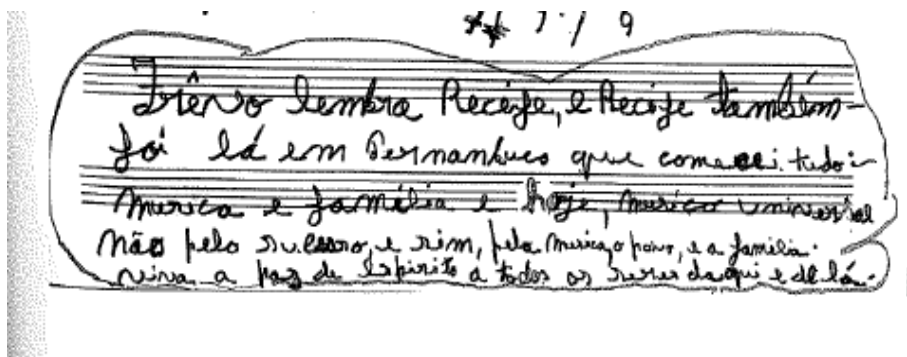 Frêvo lembra Recife, e Recife também
foi lá em Pernambuco que comecei tudo:
Musica e família e hoje, musico universal
não pelo sucesso, e sim, pela musica, o povo, e a familia.
viva a paz de Espirito a todos os seres daqui e de lá.